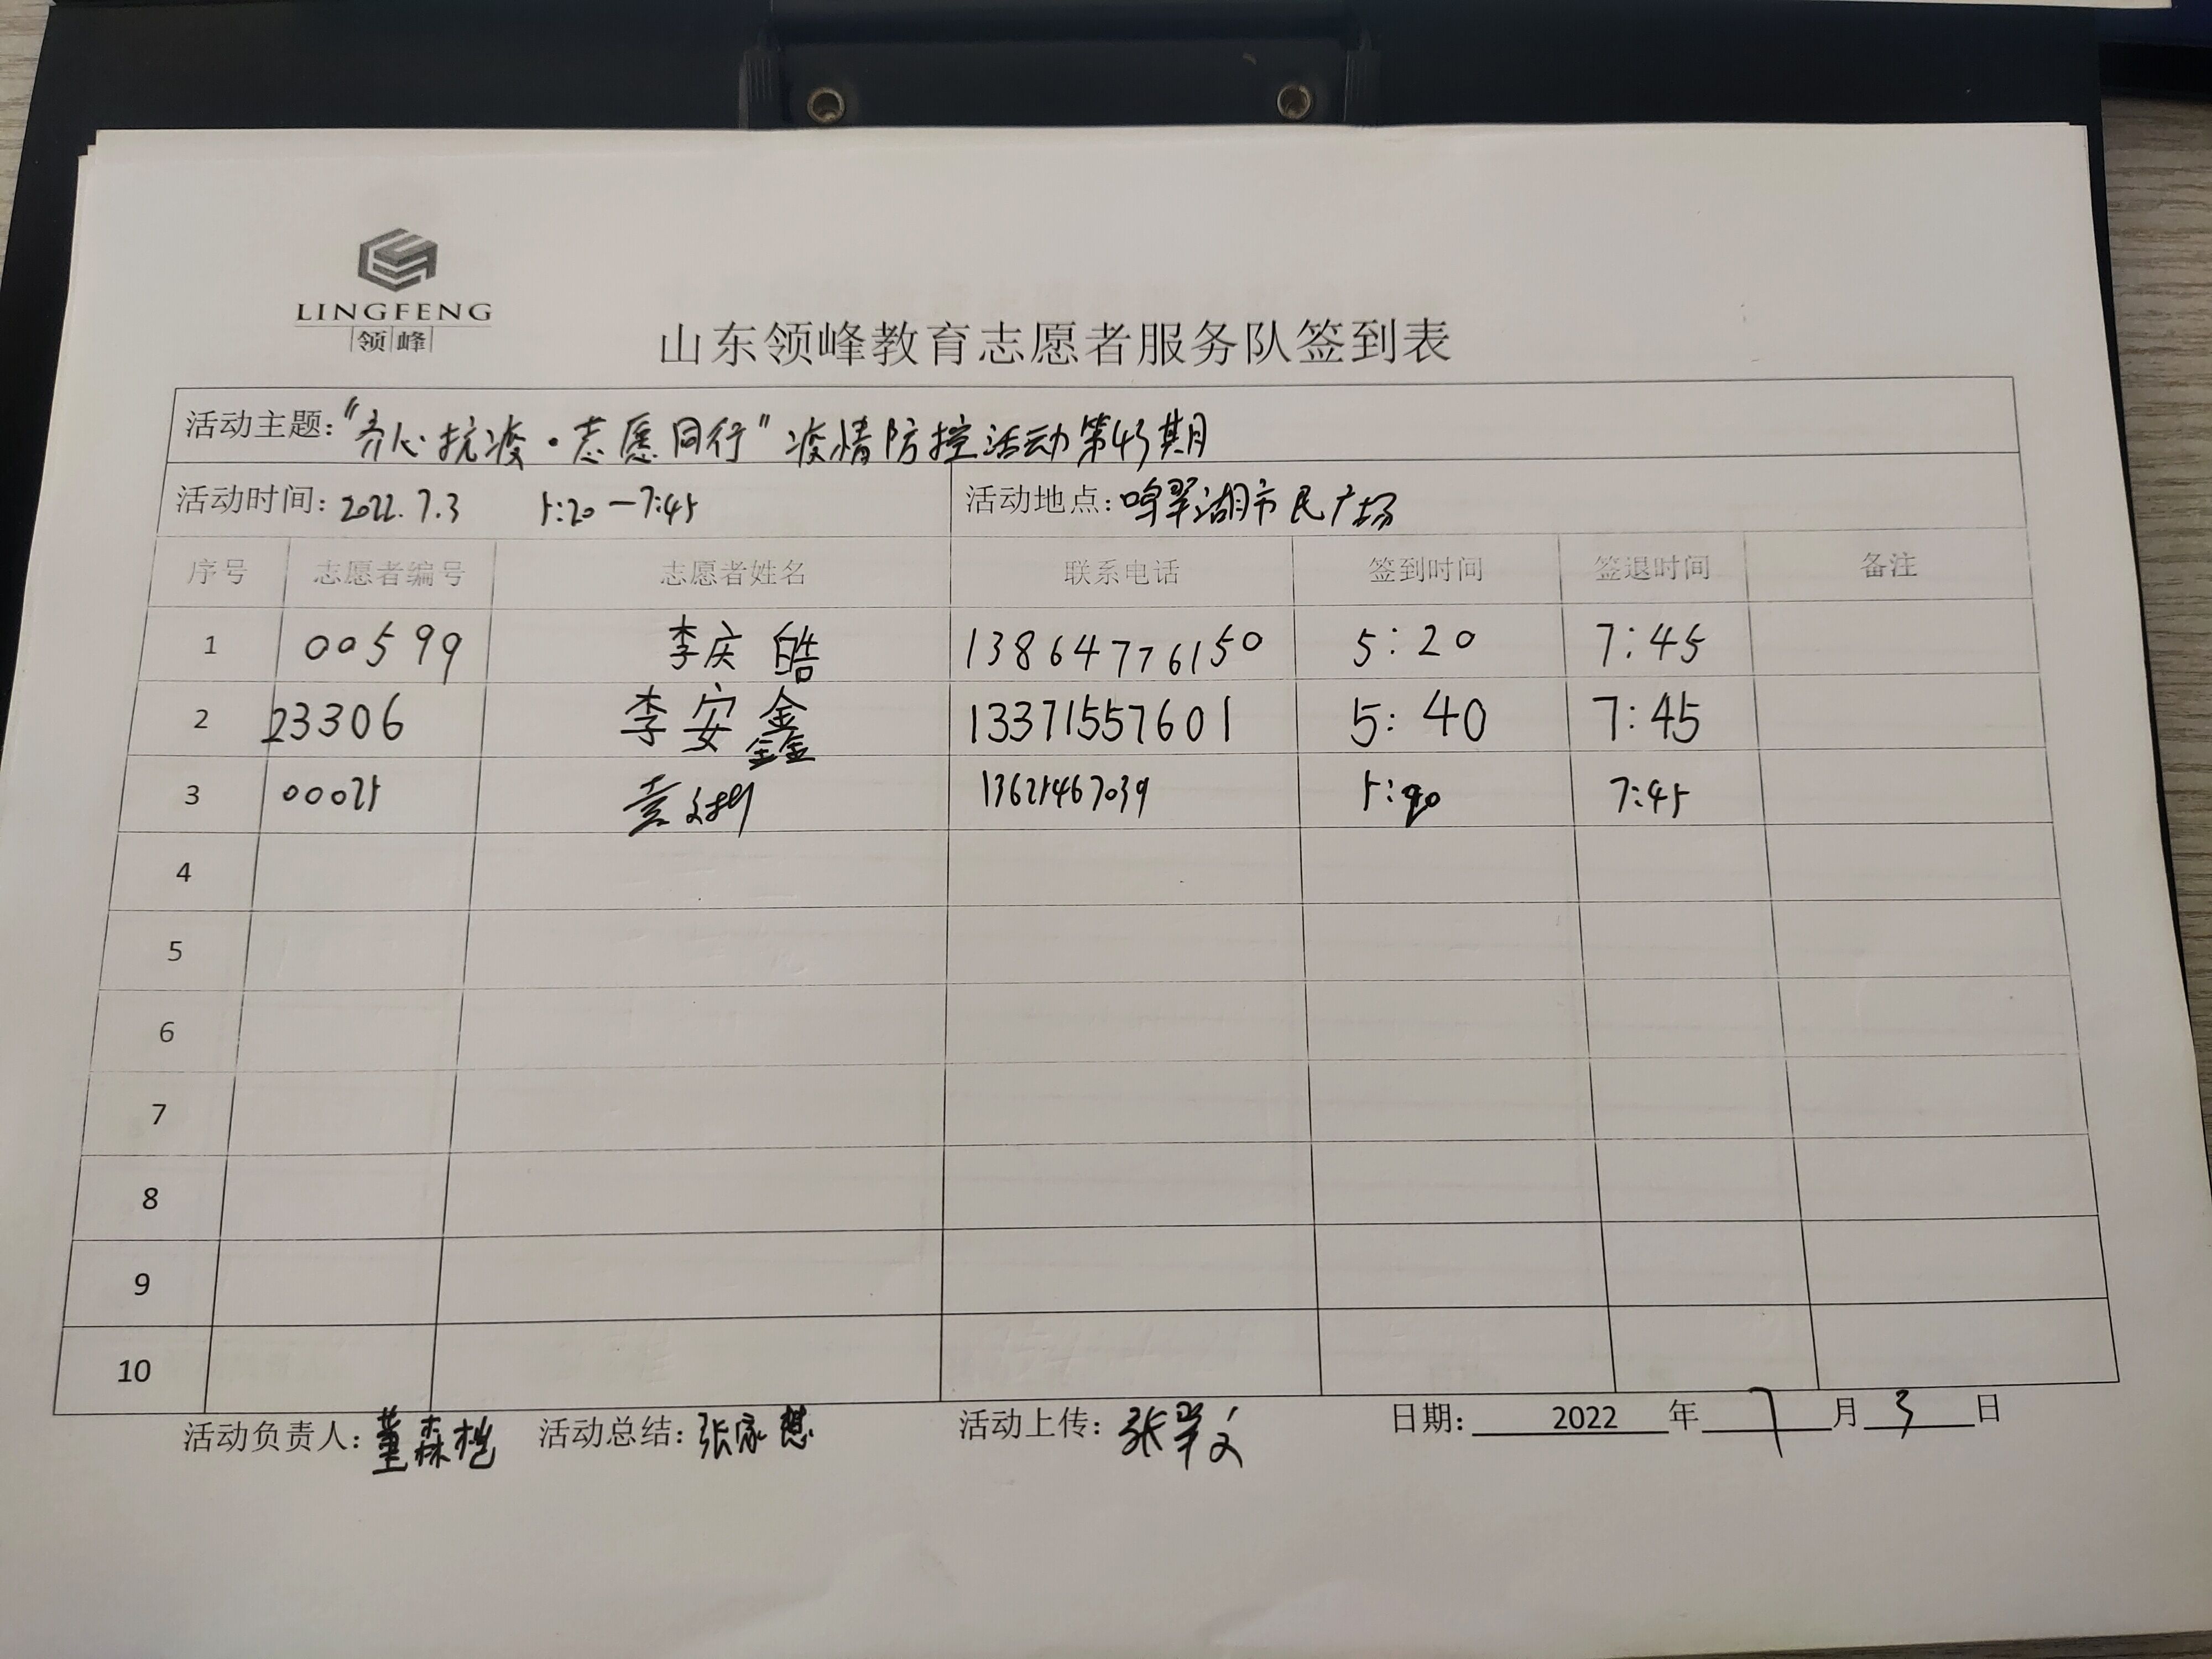 LINGFENG
领峰
山东领峰教育志愿者服务队签到表
活动主题："齐心抗疫·志愿同行"疫情防控活动第43期
活动时间：2022.7.3 5:20—7:45 活动地点：鸣翠湖市民广场
序号 志愿者编号 志愿者姓名 联系电话 签到时间 签退时间 备注
1 00599 李庆皓 13864776150 5:20 7:45
2 23306 李安鑫 13371557601 5:40 7:45
3 00025 袁 13625467039 5:20 7:45
4
5
6
7
8
9
10
活动负责人：董森 活动总结：张家懋 活动上传：张学文 日期： 2022 年 7 月 3 日